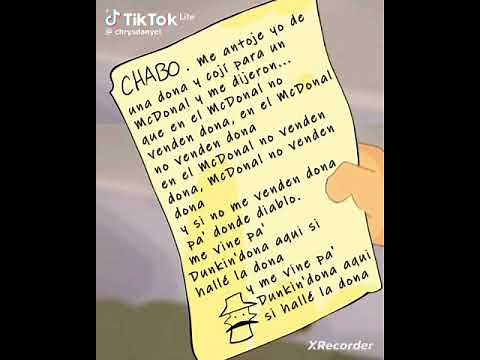 TikTok Lite
@chrysdanyel
CHABO. me antoje yo de
una dona y cojí para un
McDonal y me dijeron...
que en el McDonal no
venden dona, en el McDonal
no venden dona
en el McDonal no venden
dona, McDonal no venden
dona
y si no me venden dona
pa' donde diablo.
me vine pa'
Dunkin'dona aqui si
hallé la dona
y me vine pa'
Dunkin'dona aqui
si hallé la dona
XRecorder